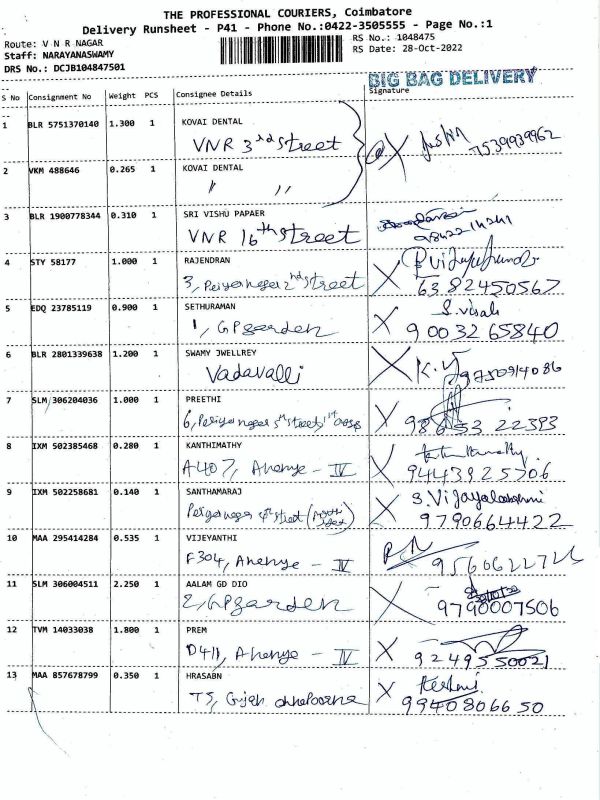 THE PROFESSIONAL COURIERS, Coimbatore
Delivery Runsheet - P41 - Phone No.:0422-3505555 - Page No.:1
Route: V N R NAGAR
RS No.: 1048475
Staff: NARAYANASWAMY
RS Date: 28-Oct-2022
DRS No.: DCJB104847501
BIG BAG DELIVERY
S No Consignment No Weight PCS Consignee Details Signature
1 BLR 5751370140 1.300 1 KOVAI DENTAL
VNR 3rd street 7539939962
2 VKM 488646 0.265 1 KOVAI DENTAL
" "
3 BLR 1900778344 0.310 1 SRI VISHU PAPAER
VNR 16th street
4 STY 58177 1.000 1 RAJENDRAN
3, Periyanagar 2nd street 6382450567
5 EDQ 23785119 0.900 1 SETHURAMAN S. visali
1, GP garden 9003265840
6 BLR 2801339638 1.200 1 SWAMY JWELLREY
Vadavalli 9750914086
7 SLM 306204036 1.000 1 PREETHI
6, Periyanagar 5th street 22393
8 IXM 502385468 0.280 1 KANTHIMATHY
A407, - IV 9443925706
9 IXM 502258681 0.140 1 SANTHAMARAJ S. Vijayalakshmi
Periyanagar 4th street 9790664422
10 MAA 295414284 0.535 1 VIJEYANTHI
F304, - IV
11 SLM 306004511 2.250 1 AALAM GD DIO
2, GP garden 9790007506
12 TVM 14033038 1.800 1 PREM
D411, - IV 9249550021
13 MAA 857678799 0.350 1 HRASABN
T5, 9940806650